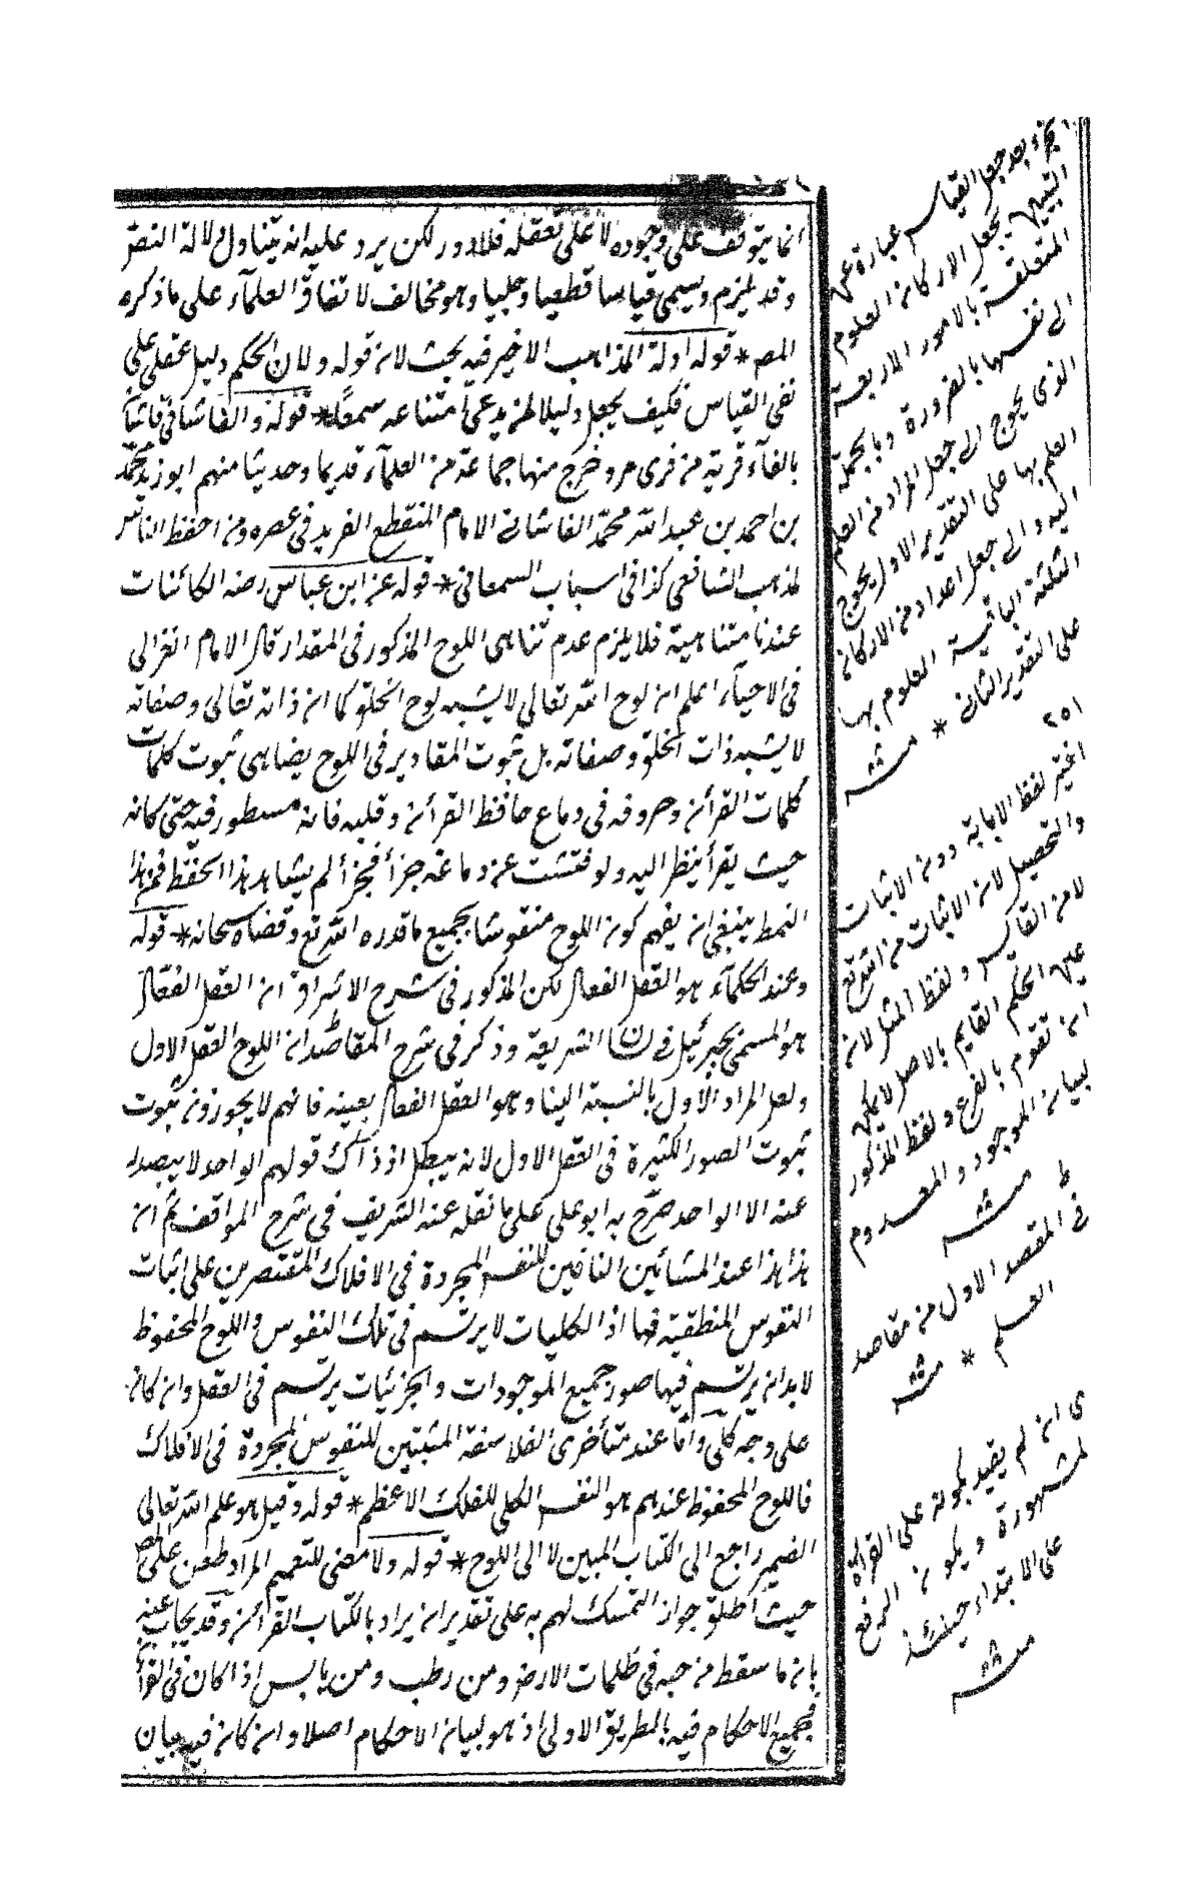 انما يتوقف على وجوده لا على تعقله فلا دور لكن يرد عليه انه يتناول دلالة النص
وقد يلزم ويسمى قياسا قطعيا وجليا وهو مخالف لاتفاق العلماء على ما ذكره
المص * قوله ادلة المذاهب الاخير فيه بحث لان قوله ولان الحكم دليل عقلى على
نفى القياس فكيف يجعل دليلا لمن يدعى امتناعه سمعا * قوله والفاشانى فاشان
بالفاء قرية من قرى مرو خرج منها جماعة من العلماء قديما وحديثا منهم ابو زيد محمد
بن احمد بن عبد الله محمد الفاشانى الامام المنقطع الفريد فى عصره ومن احفظ الناس
لمذهب الشافعى كذا فى اسباب السمعانى * قوله عن ابن عباس رضه الكائنات
عندنا متناهية فلا يلزم عدم تناهى اللوح المذكور فى المقدار قال الامام الغزالى
فى الاحياء اعلم ان لوح الله تعالى لا يشبه لوح الخلق كما ان ذاته تعالى وصفاته
لا يشبه ذات الخلق وصفاته بل ثبوت المقادير فى اللوح يضاهى ثبوت كلمات
كلمات القرآن وحروفه فى دماغ حافظ القرآن وقلبه فانه مسطور فيه حتى كانه
حيث يقرأ ينظر اليه ولو فتشت عن دماغه جزأ فجزأ لم يشاهد هذا الخط فمن هذا
النمط ينبغى ان يفهم كون اللوح منقوشا بجميع ما قدره الله تع وقضاه سبحانه * قوله
وعند الحكماء هو العقل الفعال لكن المذكور فى شرح الاشراق ان العقل الفعال
هو المسمى بجبرئيل فى لسان الشريعة وذكر فى شرح المقاصد ان اللوح العقل الاول
ولعل المراد الاول بالنسبة الينا وهو العقل الفعال بعينه فانهم لا يجوزون ثبوت
ثبوت الصور الكثيرة فى العقل الاول لانه يبطل اذ ذاك قولهم الواحد لا يصدر
عنه الا الواحد صرح به ابو على على ما نقله عنه الشريف فى شرح المواقف ثم ان
هذا هذا عند المشائين النافين للنفس المجردة فى الافلاك المقتصرين على اثبات
النفوس المنطقية فيها اذ الكليات لا يرتسم فى تلك النفوس واللوح المحفوظ
لا بد ان يرتسم فيها صور جميع الموجودات والجزئيات يرتسم فى العقل وان كان
على وجه كلى واما عند متأخرى الفلاسفة المثبتين للنفوس المجردة فى الافلاك
فاللوح المحفوظ عندهم هو النفس الكلى للفلك الاعظم * قوله وقيل هو علم الله تعالى
الضمير راجع الى الكتاب المبين لا الى اللوح * قوله ولا معنى للتعميم المراد طعن على المص
حيث اطلق جواز التمسك لهم به على تقدير ان يراد بالكتاب القرآن وقد يجاب عنه
بان ما سقط من حبه فى ظلمات الارض ومن رطب ومن يابس اذا كان فى القرآن
فجميع الاحكام فيه بالطريق الاولى اذ هو لبيان الاحكام اصلا وان كان فيه بيان
الجزء بعد جعل القياس عبارة عن
التبيين يجعل الاركان العلوم
المتعلقة بالامور الاربعة
الى نفسها بالضرورة وبالجملة
الذى يحوج الى جعل المراد من العلم
العلم بها على التقدير الاول يحوج
اليه والى جعل اعداد من الاركان
الثلثة الباقية العلوم بها
على التقدير الثانى * منه
٢٥١
اختير لفظ الابانة دون الاثبات
والتحصيل لان الاثبات من الله تع
لا من القائس ولفظ المثل لان
عين الحكم القايم بالاصل لا يمكن
ان تقوم بالفرع ولفظ المذكور
لبيان الموجود والمعدوم
منه
فى المقصد الاول من مقاصد
العلم * منه
ى ان لم يقيد بكونه على القراة
لمشهورة ويكون الرفع
على الابتداء حينئذ
منه